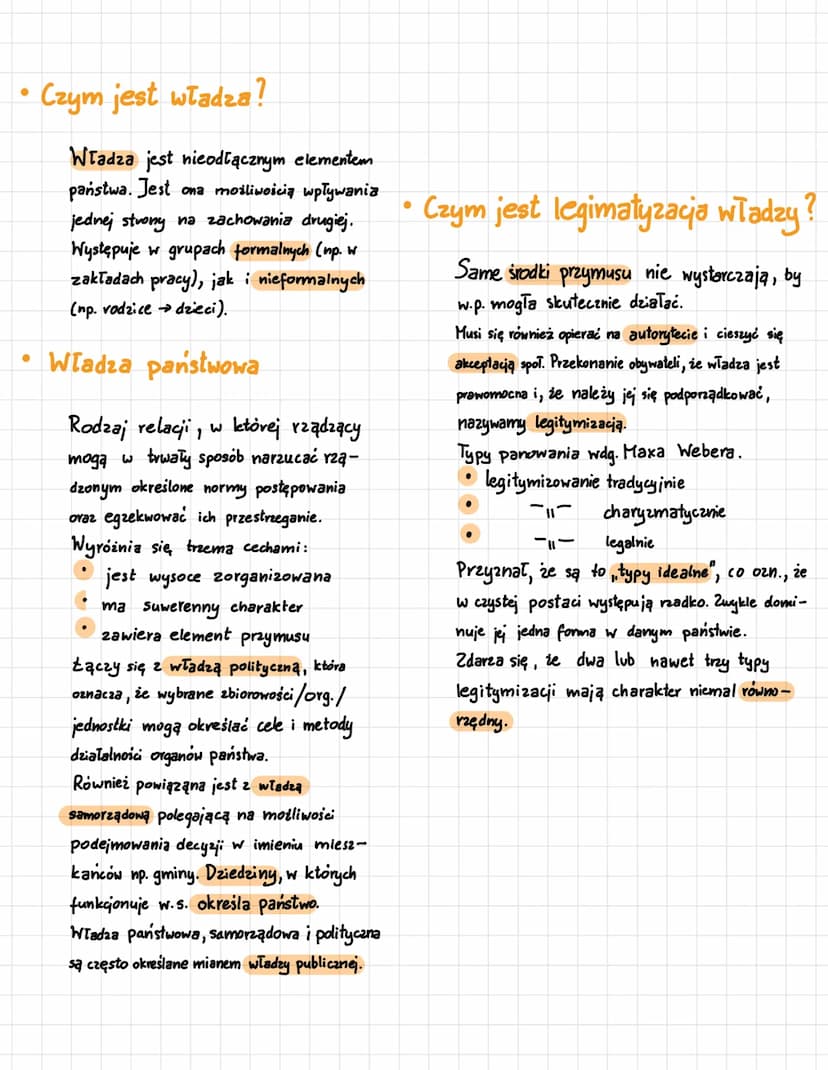 • Czym jest władza?
Władza jest nieodłącznym elementem
państwa. Jest ona możliwością wpływania
jednej strony na zachowania drugiej.
Występuje w grupach formalnych (np. w
zakładach pracy), jak i nieformalnych
(np. rodzice → dzieci).
• Władza państwowa
Rodzaj relacji, w której rządzący
mogą w trwały sposób narzucać rzą-
dzonym określone normy postępowania
oraz egzekwować ich przestrzeganie.
Wyróżnia się trzema cechami:
• jest wysoce zorganizowana
• ma suwerenny charakter
• zawiera element przymusu
Łączy się z władzą polityczną, która
oznacza, że wybrane zbiorowości/org./
jednostki mogą określać cele i metody
działalności organów państwa.
Również powiązana jest z władzą
samorządową polegającą na możliwości
podejmowania decyzji w imieniu miesz-
kańców np. gminy. Dziedziny, w których
funkcjonuje w.s. określa państwo.
Władza państwowa, samorządowa i polityczna
są często określane mianem władzy publicznej.
• Czym jest legimatyzacja władzy?
Same środki przymusu nie wystarczają, by
w.p. mogła skutecznie działać.
Musi się również opierać na autorytecie i cieszyć się
akceptacją społ. Przekonanie obywateli, że władza jest
prawomocna i, że należy jej się podporządkować,
nazywamy legitymizacją.
Typy panowania wdg. Maxa Webera.
• legitymizowanie tradycyjnie
• —॥— charyzmatycznie
• —॥— legalnie
Przyznał, że są to „typy idealne", co ozn., że
w czystej postaci występują rzadko. Zwykle domi-
nuje jej jedna forma w danym państwie.
Zdarza się, że dwa lub nawet trzy typy
legitymizacji mają charakter niemal równo-
rzędny.